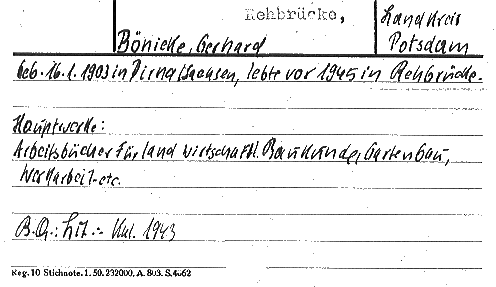 Rehbrücke,
Landkreis
Potsdam
Bönicke, Gerhard
Geb. 16.1.1903 in Pirna/Sachsen, lebte vor 1945 in Rehbrücke.
Hauptwerke:
Arbeitsbücher für landwirtschaftl. Baukunde, Gartenbau,
Werkarbeit etc.
B.Q.: Lit.: Kül. 1943
Reg. 10 Stichnote. 1. 50. 232000. A. 803. S. 4062